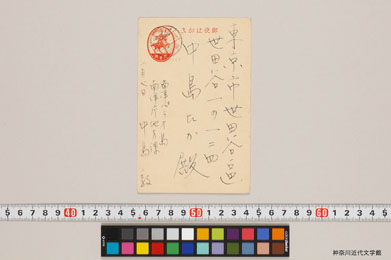 郵便はがき
東京市世田谷区
世田谷一の一二四
中島たか殿
南洋パラオ島
南洋庁地方課
中島敦
5 6 7 8 9 40 1 2 3 4 5 6 7 8 9 50 1 2 3 4 5 6 7 8 9 60 1 2 3 4 5
神奈川近代文学館